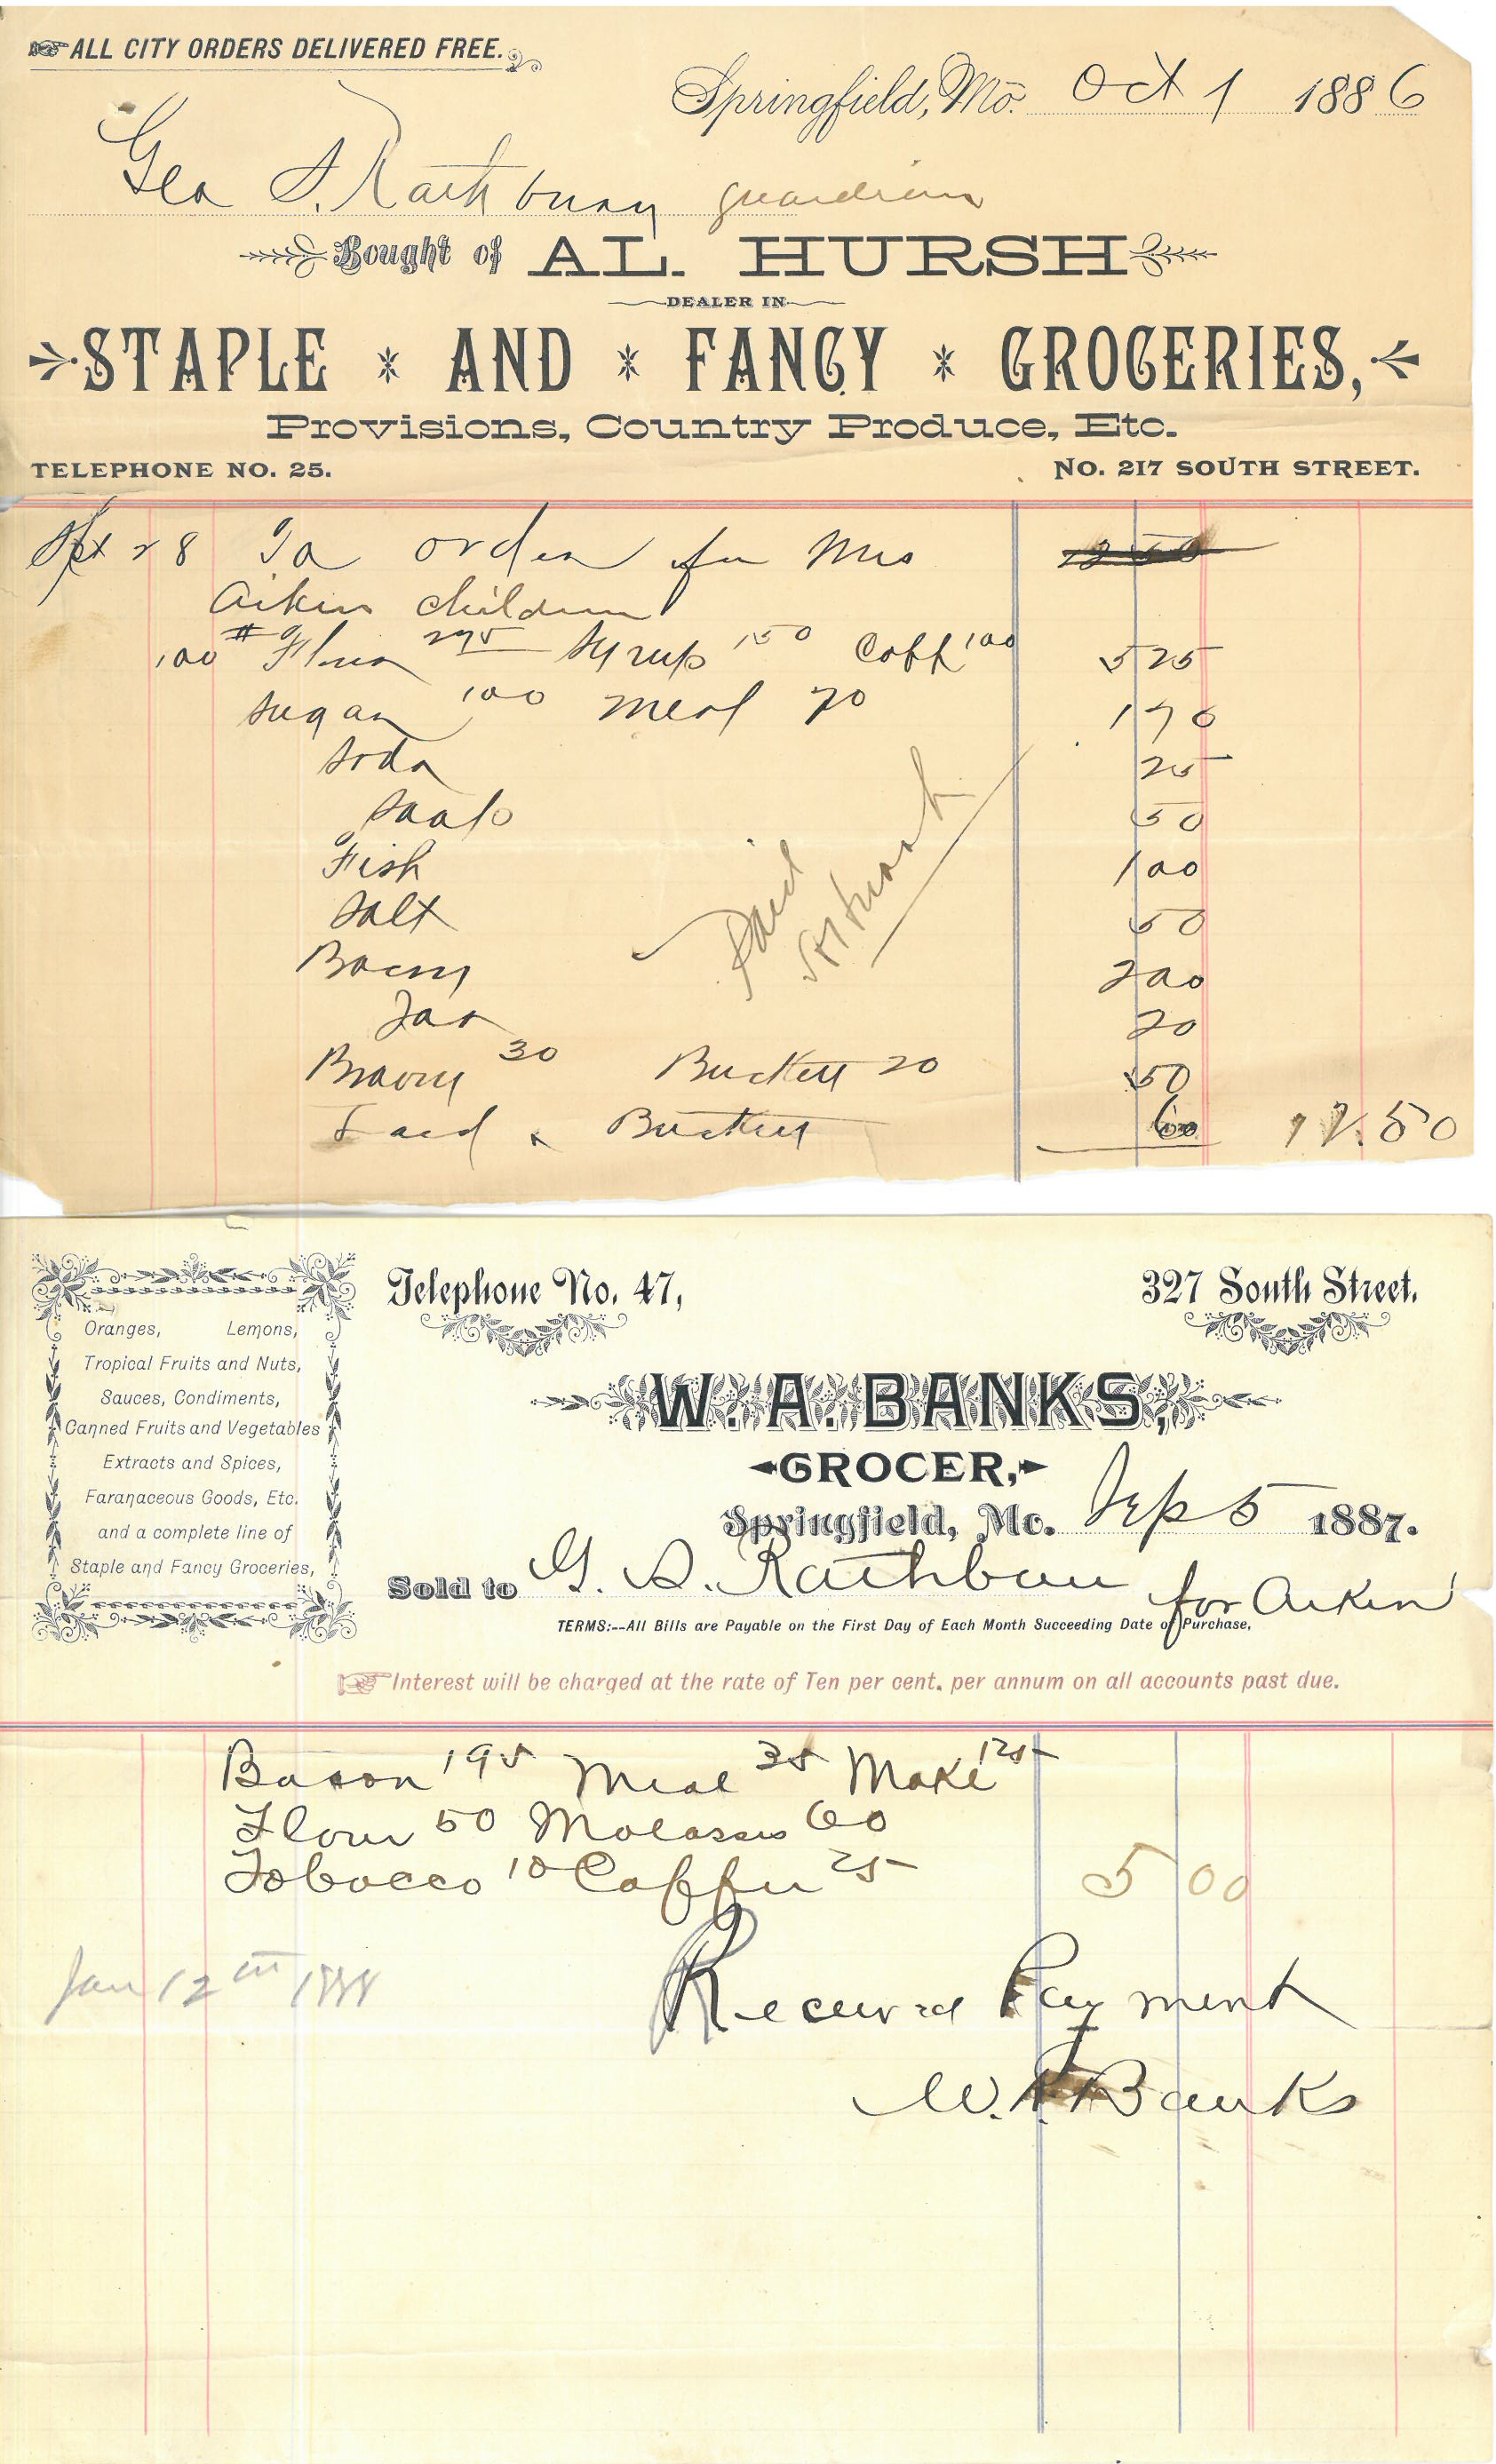 ALL CITY ORDERS DELIVERED FREE.
Springfield, Mo. Oct 1 1886
Geo S. Rathbun guardian
Bought of AL. HURSH
DEALER IN
STAPLE AND FANCY GROCERIES,
Provisions, Country Produce, Etc.
TELEPHONE NO. 25. NO. 217 SOUTH STREET.
Sept 28 To order for Mrs 12 50
Aikin children
100 # Flour 275 Syrup 150 Coff 100 5 25
Sugar 100 Meal 70 1 70
Soda 25
Soap 50
Fish 1 00
Salt 50
Bacon 2 00
Jar 20
30 Buckett 20 50
Lard & Buckett 60 12.50
Paid
Telephone No. 47, 327 South Street.
Oranges, Lemons,
Tropical Fruits and Nuts,
Sauces, Condiments,
Canned Fruits and Vegetables
Extracts and Spices,
Faranaceous Goods, Etc.
and a complete line of
Staple and Fancy Groceries,
W. A. BANKS,
GROCER,
Springfield, Mo. Sep 5 1887.
Sold to G. S. Rathbun for Aikin
TERMS:--All Bills are Payable on the First Day of Each Month Succeeding Date of Purchase,
Interest will be charged at the rate of Ten per cent. per annum on all accounts past due.
Bacon 195 Meal 35 125
Flour 50 Molasses 60
Tobacco 10 Coffee 25 5 00
Jan 12th 1888 Received Payment
W. A. Banks